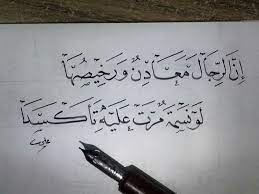 إنَّ الرِّجَالَ مَعَادِنٌ وَرَخِيصُهَا
لَوْ نَسْمَةٌ مَرَّتْ عَلَيْهِ تَأَكْسَدَا